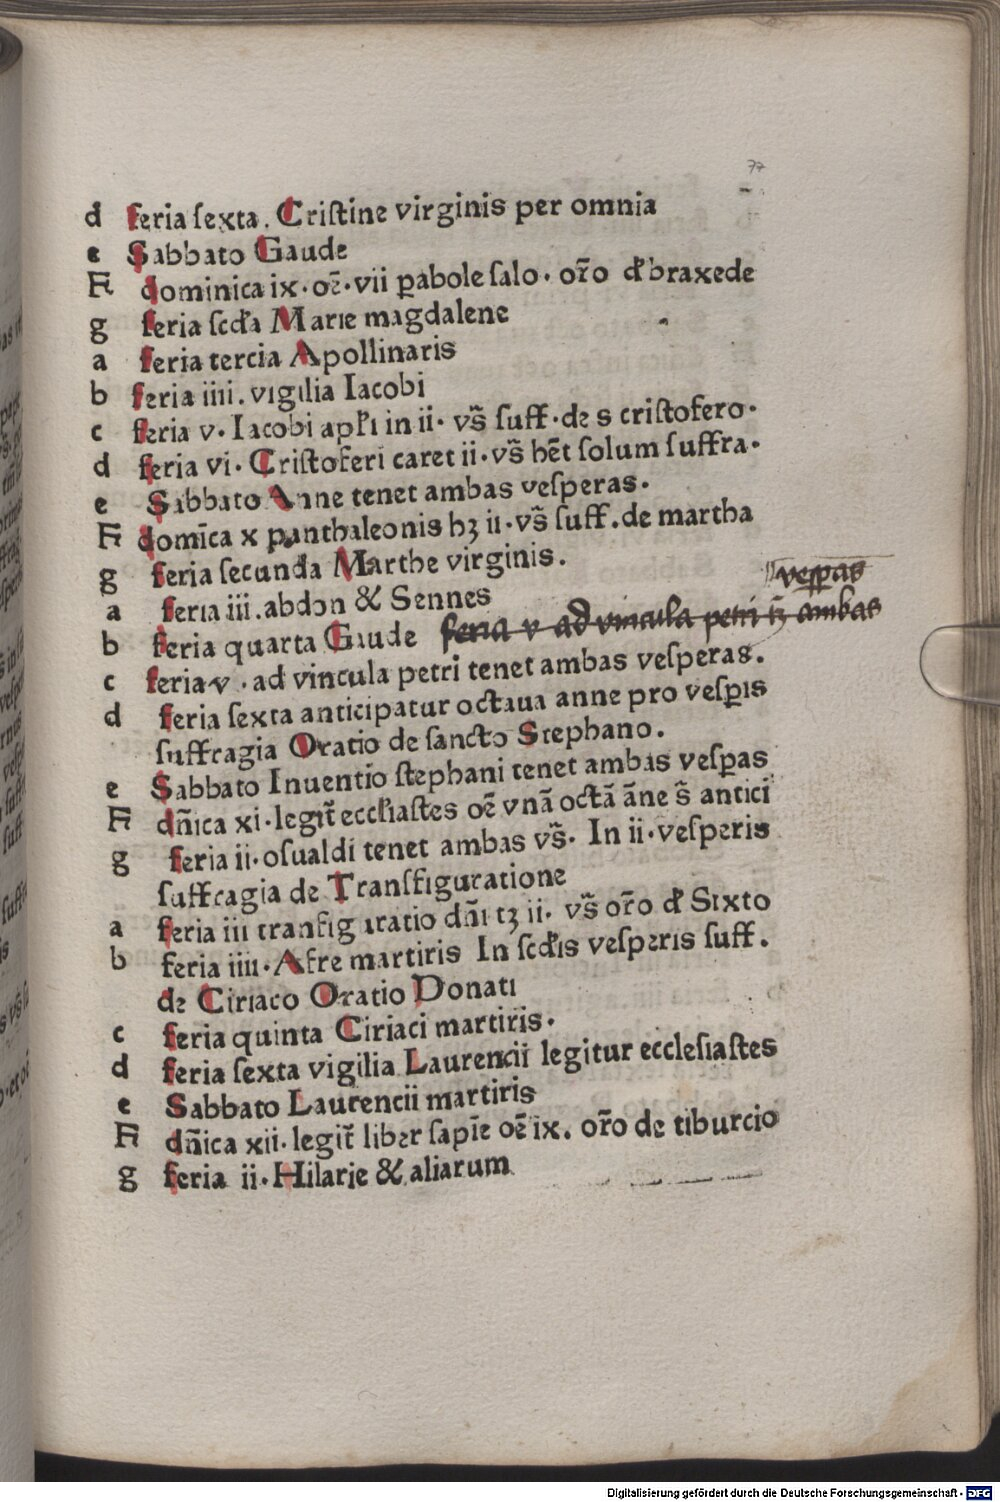 77
d feria ſexta. Criſtine virginis per omnia
e Sabbato Gaude
A dominica ix. oē. vii ꝑabole ſalo. or̄o d' braxede
g feria ſcd'a Marie magdalene
a feria tercia Apollinaris
b feria iiii. vigilia Iacobi
c feria v. Iacobi apl'i in ii. vs̄ ſuff. de s criſtofero.
d feria vi. Criſtoferi caret ii. vs̄ hēt ſolum ſuffra.
e Sabbato Anne tenet ambas veſperas.
A domīca x panthaleonis hꝫ ii. vs̄ ſuff. de martha
g feria ſecunda Marthe virginis.
a feria iii. abdon & Sennes
veſꝑas
b feria quarta Gaude feria v ad vincula petri tꝫ ambas
c feria v. ad vincula petri tenet ambas veſperas.
d feria ſexta anticipatur octaua anne pro veſꝑis
ſuffragia Oratio de ſancto Stephano.
e Sabbato Inuentio ſtephani tenet ambas veſꝑas
A dn̄ica xi. legit̄ eccl'iaſtes oē vnā octā āne s̄ antici
g feria ii. oſualdi tenet ambas vs̄. In ii. veſperis
ſuffragia de Transfiguratione
a feria iii tranſiguratio dn̄i tꝫ ii. vs̄ or̄o d' Sixto
b feria iiii. Afre martiris In ſcd'is veſperis ſuff.
de Ciriaco Oratio Donati
c feria quinta Ciriaci martiris.
d feria ſexta vigilia Laurencii legitur eccleſiaſtes
e Sabbato Laurencii martiris
A dn̄ica xii. legit̄ liber ſapīe oē ix. or̄o de tiburcio
g feria ii. Hilarie & aliarum
Digitalisierung gefördert durch die Deutsche Forschungsgemeinschaft - DFG